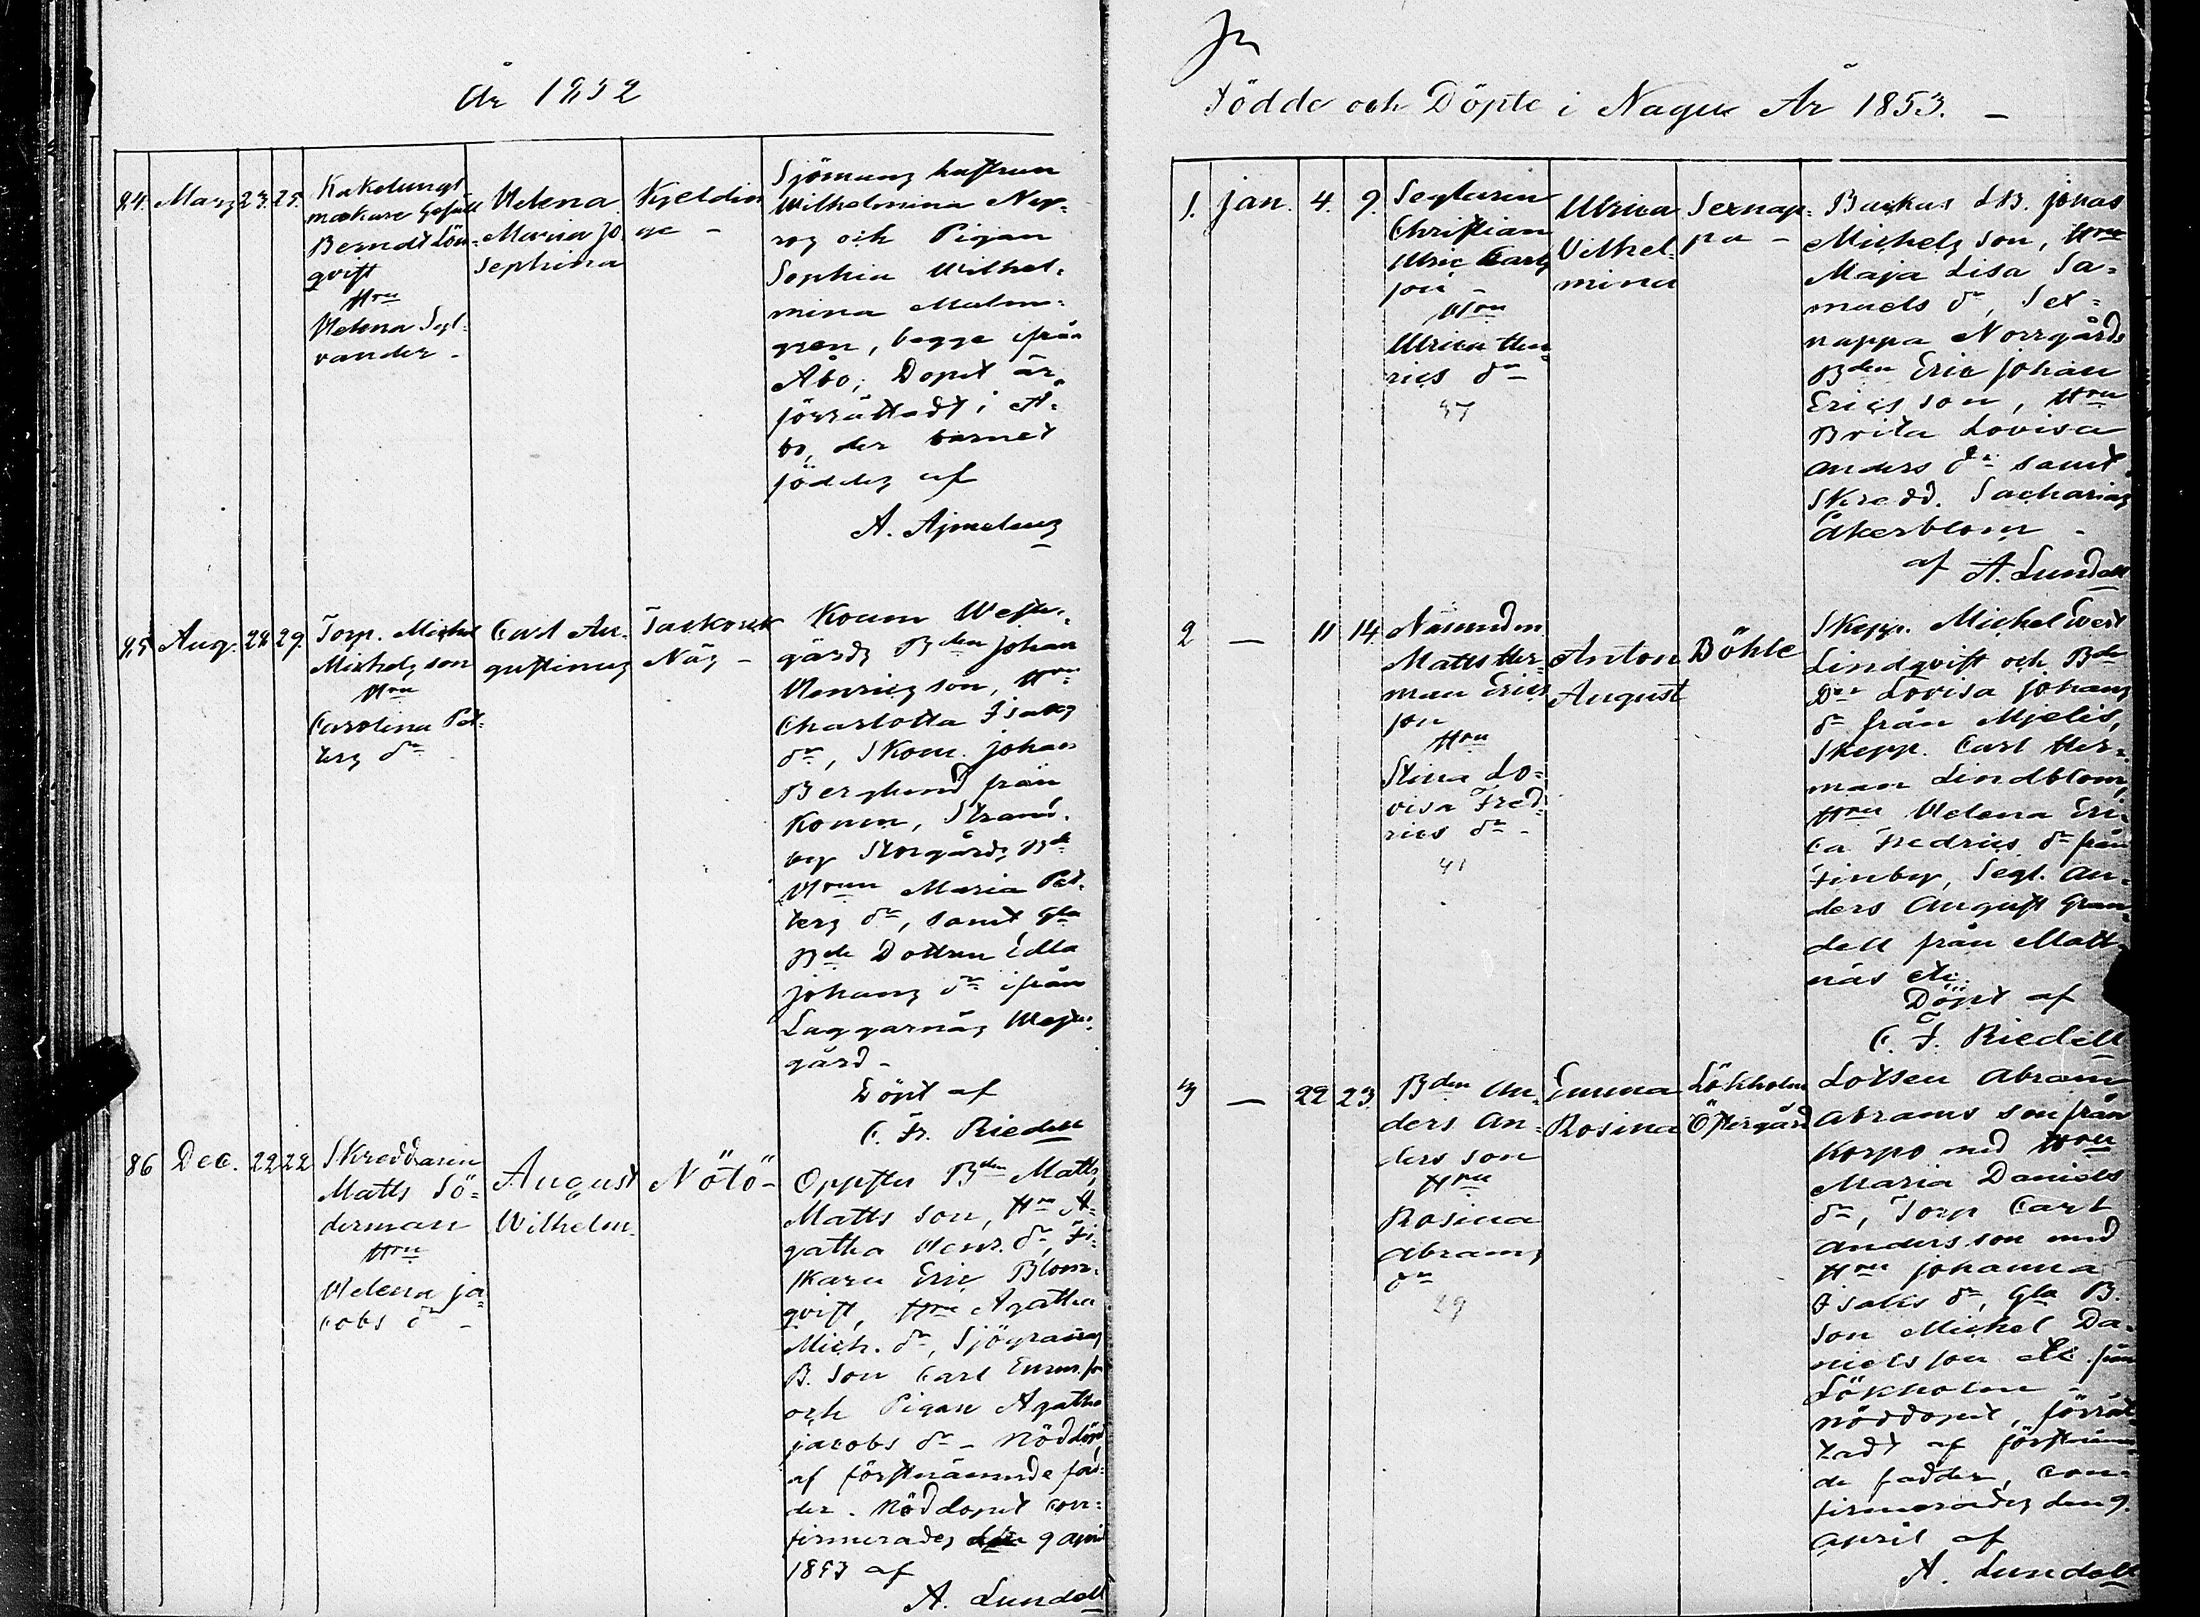 År 1852
84. Mars 23. 25.
Kakelungs
makare Gesäll
Berndt Lön-
qvist
Hru
Helena Syl-
vander -
Helena
Maria Jo-
sephina
Kjeldin
ge -
Sjömans hustrun
Wilhelmina
och Pigan
Sophia Wilhel-
mina Malm-
gren, begge ifrån
Åbo; Dopet är
förrättadt i Å-
bo, der barnet
föddes af
A. Ajmelæus
85 Aug. 28 29.
Torp. Michel
Michels son
Hru
Carolina Pet-
ters dr
Carl Au-
gustinus
Näs -
Koum West-
gårds Bden Johan
Henrics son, Hru
Charlotta Isaks
dr, Skom. Johan
Berglund från
Koum, Strand-
by Storgårds Bde
Hrun Maria Pet-
ters dr, samt Gla
Bde Dottren Edla
Johans dr ifrån
Laggarnäs West-
gård -
Döpt af
C. Fr. Riedell
86 Dec. 22 22
Skreddaren
Matts Sö-
derman
Hru
Helena Ja-
cobs dr -
August
Wilhelm.
Nötö -
Oppster Bden Matts
Matts son, Hru A-
gatha Henr. dr, Fi-
skare Eric Blom-
qvist, Hru Agatha
Mich. dr,
B. Son Carl
och Pigan Agatha
Jacobs dr - Nöddöpt
af förstnämnde fad-
der. Nöddopet con-
firmerades 9 april
1853 af
A. Lundell
Födde och Döpte i Nagu År 1853. -
1. Jan. 4. 9.
Seglaren
Christian
Ulric Carls
son -
Hru
Ulrica Hen-
rics dr -
Ulrica
Vilhel-
mina
Sexnap-
pa -
Backus Jonas
Michels son, Hru
Maja Lisa Sa-
muels dr, Sex-
nappa Norrgårds
Bden Eric Johan
Erics son, Hru
Brita Lovisa
Anders dr samt
Skredd. Sacharias
Åkerblom -
af A. Lundell
2 - 11 14.
Matts Her-
man Erics
son
Hru
Stina Lo-
visa Fred-
rics dr -
41
Anton
August
Böhle
Skepp. Michel
Lindqvist och Bde
Dr Lovisa Johans
dr från Mjelis,
Skepp. Carl Her-
man Lindblom,
Hru Helena Eri-
ca Fredrics dr från
Finby, Segl. An-
ders August Gran-
dell från Matt-
näs etc.
Döpt af
C. F. Riedell
3 - 22 23.
Bden An-
ders An-
ders son
Hru
Rosina
Abrams
dr
29
Emma
Rosina
Lökholm
Östergård
Lotsen Abram
Abrams son från
Korpo med Hru
Maria Daniels
dr, Torp Carl
Anders son med
Hru Johanna
Isaks dr, Gla B.
Son Michel Da-
niels son etc från
Lökholm -
Nöddopet, förrät-
tadt af förstnämn-
de fadder, con-
firmerades den 9.
April af
A. Lundell